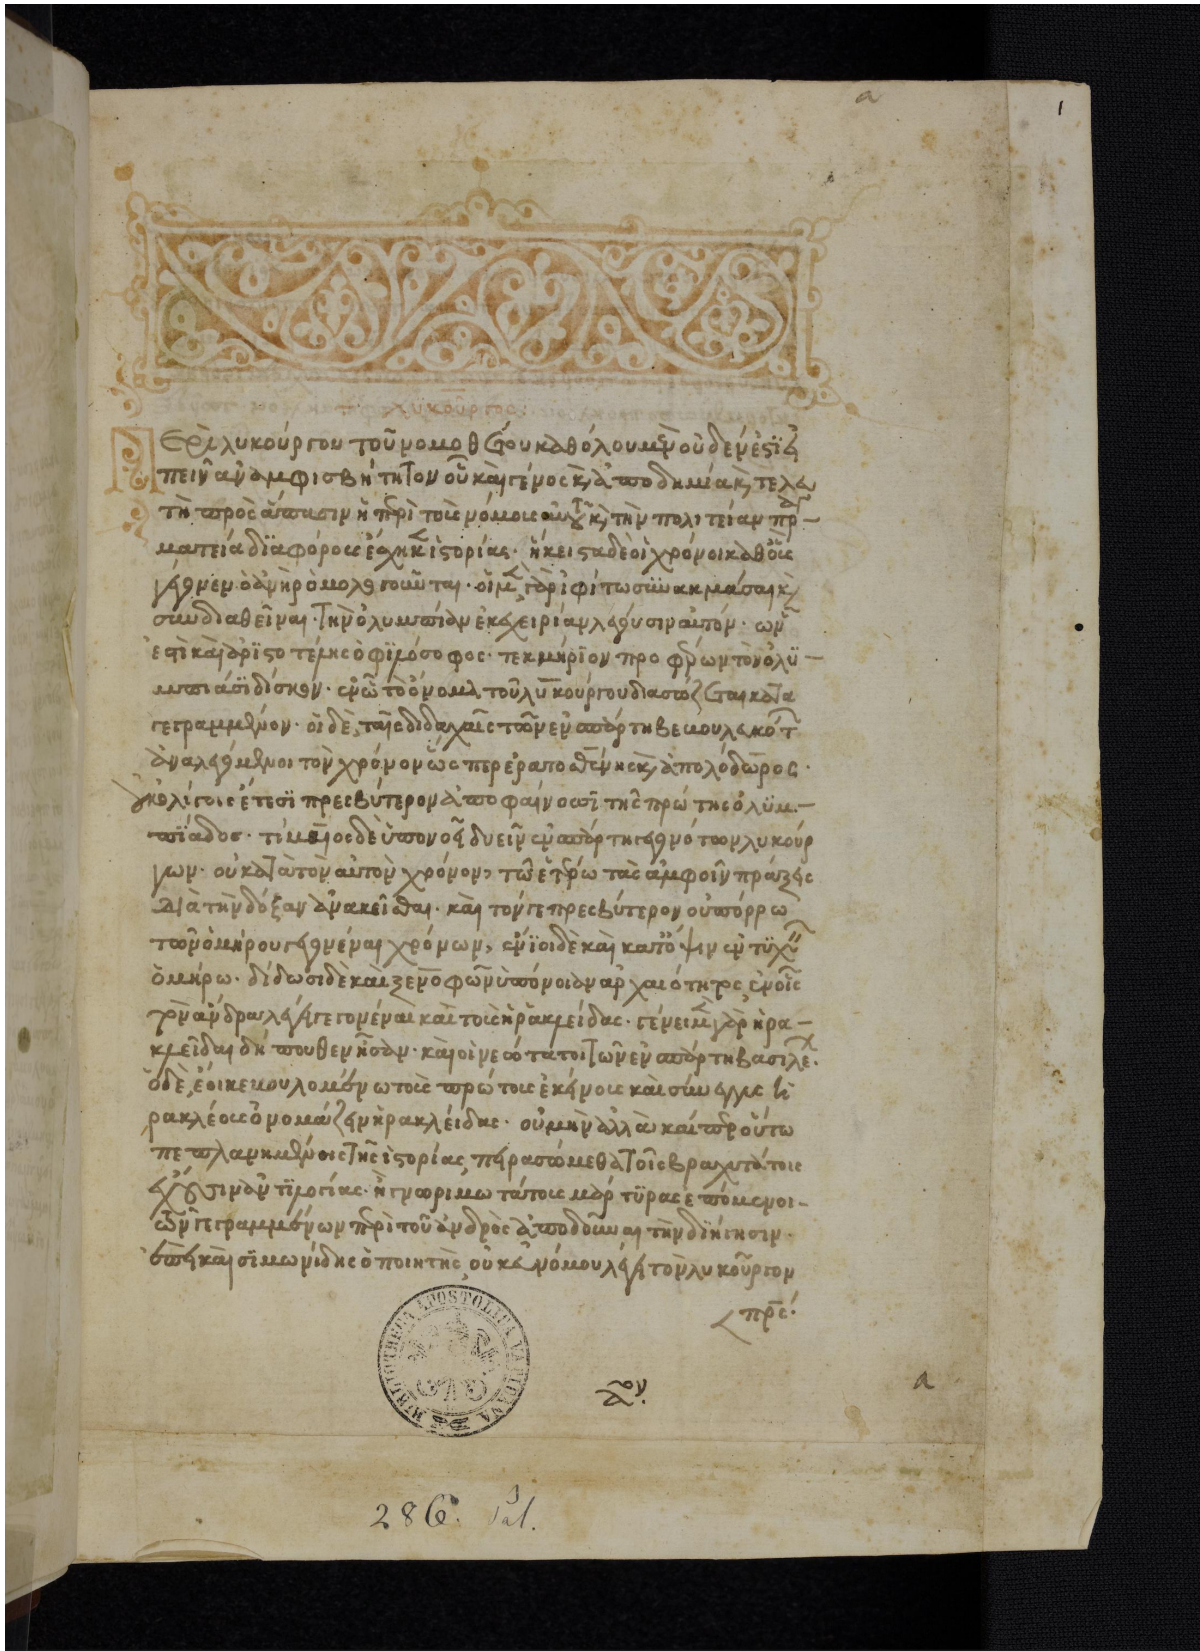 a
1
λυκοῦργος
Περὶ λυκούργου τοῦ νομοθέτου καθόλου μὲν οὐδὲν ἐστὶν εἰ
πεῖν ἀναμφισβήτητον οὗ καὶ γένος κ, ἀποδημία κ, τελευ
τὴ πρὸς ἅπασιν ἡ περὶ τοὺς νόμους αὐτοῦ κ, τὴν πολιτείαν πραγ
ματεία διαφόρους ἔσχηκεν ἱστορίας· ἥκιστα δὲ οἱ χρόνοι καθ' οὓς
γέγονεν ὁ ἀνὴρ ὁμολογοῦνται· οἱ μὲν γὰρ ἰφίτω συνακμάσαι κ,
συνδιαθεῖναι τὴν ὀλυμπιὰν ἐκεχειρίαν λέγουσιν αὐτόν· ὧν
ἐστὶ καὶ ἀριστοτέλης ὁ φιλόσοφος· τεκμήριον προφέρων τὸν ὀλυ
μπιάσι δίσκον· ἐν ᾧ τὸ ὄνομα τοῦ λυκούργου διασώζεται κατα
γεγραμμένον· οἱ δὲ, ταῖς διδαχαῖς τῶν ἐν σπάρτη βεβουλευκότ
ἀναλεγόμενοι τὸν χρόνον ὥσπερ ἐρατοσθένης κ, ἀπολόδωρος·
οὐκ ὀλίγοις ἔτεσι πρεσβύτερον ἀποφαίνουσι τῆς πρώτης ὀλυμ
πιάδος· τίμαιος δὲ ὑπονοεῖ δυεῖν ἐν σπάρτη γεγονότων λυκούρ
γων· οὐ κατὰ τὸν αὐτὸν χρόνον, τῷ ἑτέρω τὰς ἀμφοῖν πράξεις
διὰ τὴν δόξαν ἀνακεῖσθαι· καὶ τόν γε πρεσβύτερον οὐ πόρρω
τῶν ὁμήρου γεγονέναι χρόνων, ἔνιοι δὲ καὶ κατ' ὄψιν ἐντυχεῖν
ὁμήρω· δίδωσι δὲ καὶ ξενοφῶν ὑπόνοιαν ἀρχαιότητος ἐν οἷς
τὸν ἄνδρα λέγει γεγονέναι κατὰ τοὺς ἡρακλείδας· γένει μὲν γὰρ ἡρα
κλεῖδαι δήπουθεν ἦσαν· καὶ οἱ νεώτατοι τῶν ἐν σπάρτη βασιλέ·
ὁ δὲ, ἔοικε βουλομένω τοὺς πρώτους ἐκείνους καὶ σύνεγγυς ἡ
ρακλέους ὀνομάζειν ἡρακλείδας· οὐ μὴν ἀλλὰ καίπερ οὕτω
πεπλανημένης τῆς ἱστορίας, πειρασόμεθα τοῖς βραχυτάτοις
ἔχουσιν ἀντιλογίας· ἢ γνωριμωτάτους μάρτυρας ἑπόμενοι
τῶν γεγραμμένων περὶ τοῦ ἀνδρὸς ἀποδοῦναι τὴν διήγησιν·
ἐπεὶ καὶ σιμωνίδης ὁ ποιητὴς, οὐκ εὐνόμου λέγει τὸν λυκοῦργον
πρς·
BIBLIOTHECA APOSTOLICA VATICANA
αον.
a
286. Pal.